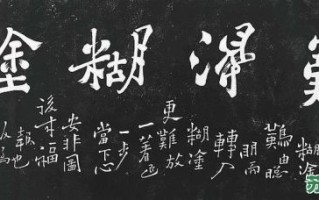 得糊塗
糊塗
難由聰
明而
轉入
糊塗
更難放
一著退
一步
當下心
安非圖
後來福
報也